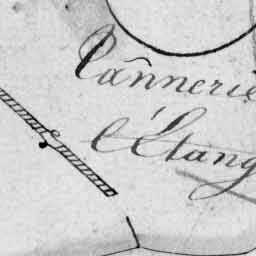 Tannerie
l'Étang